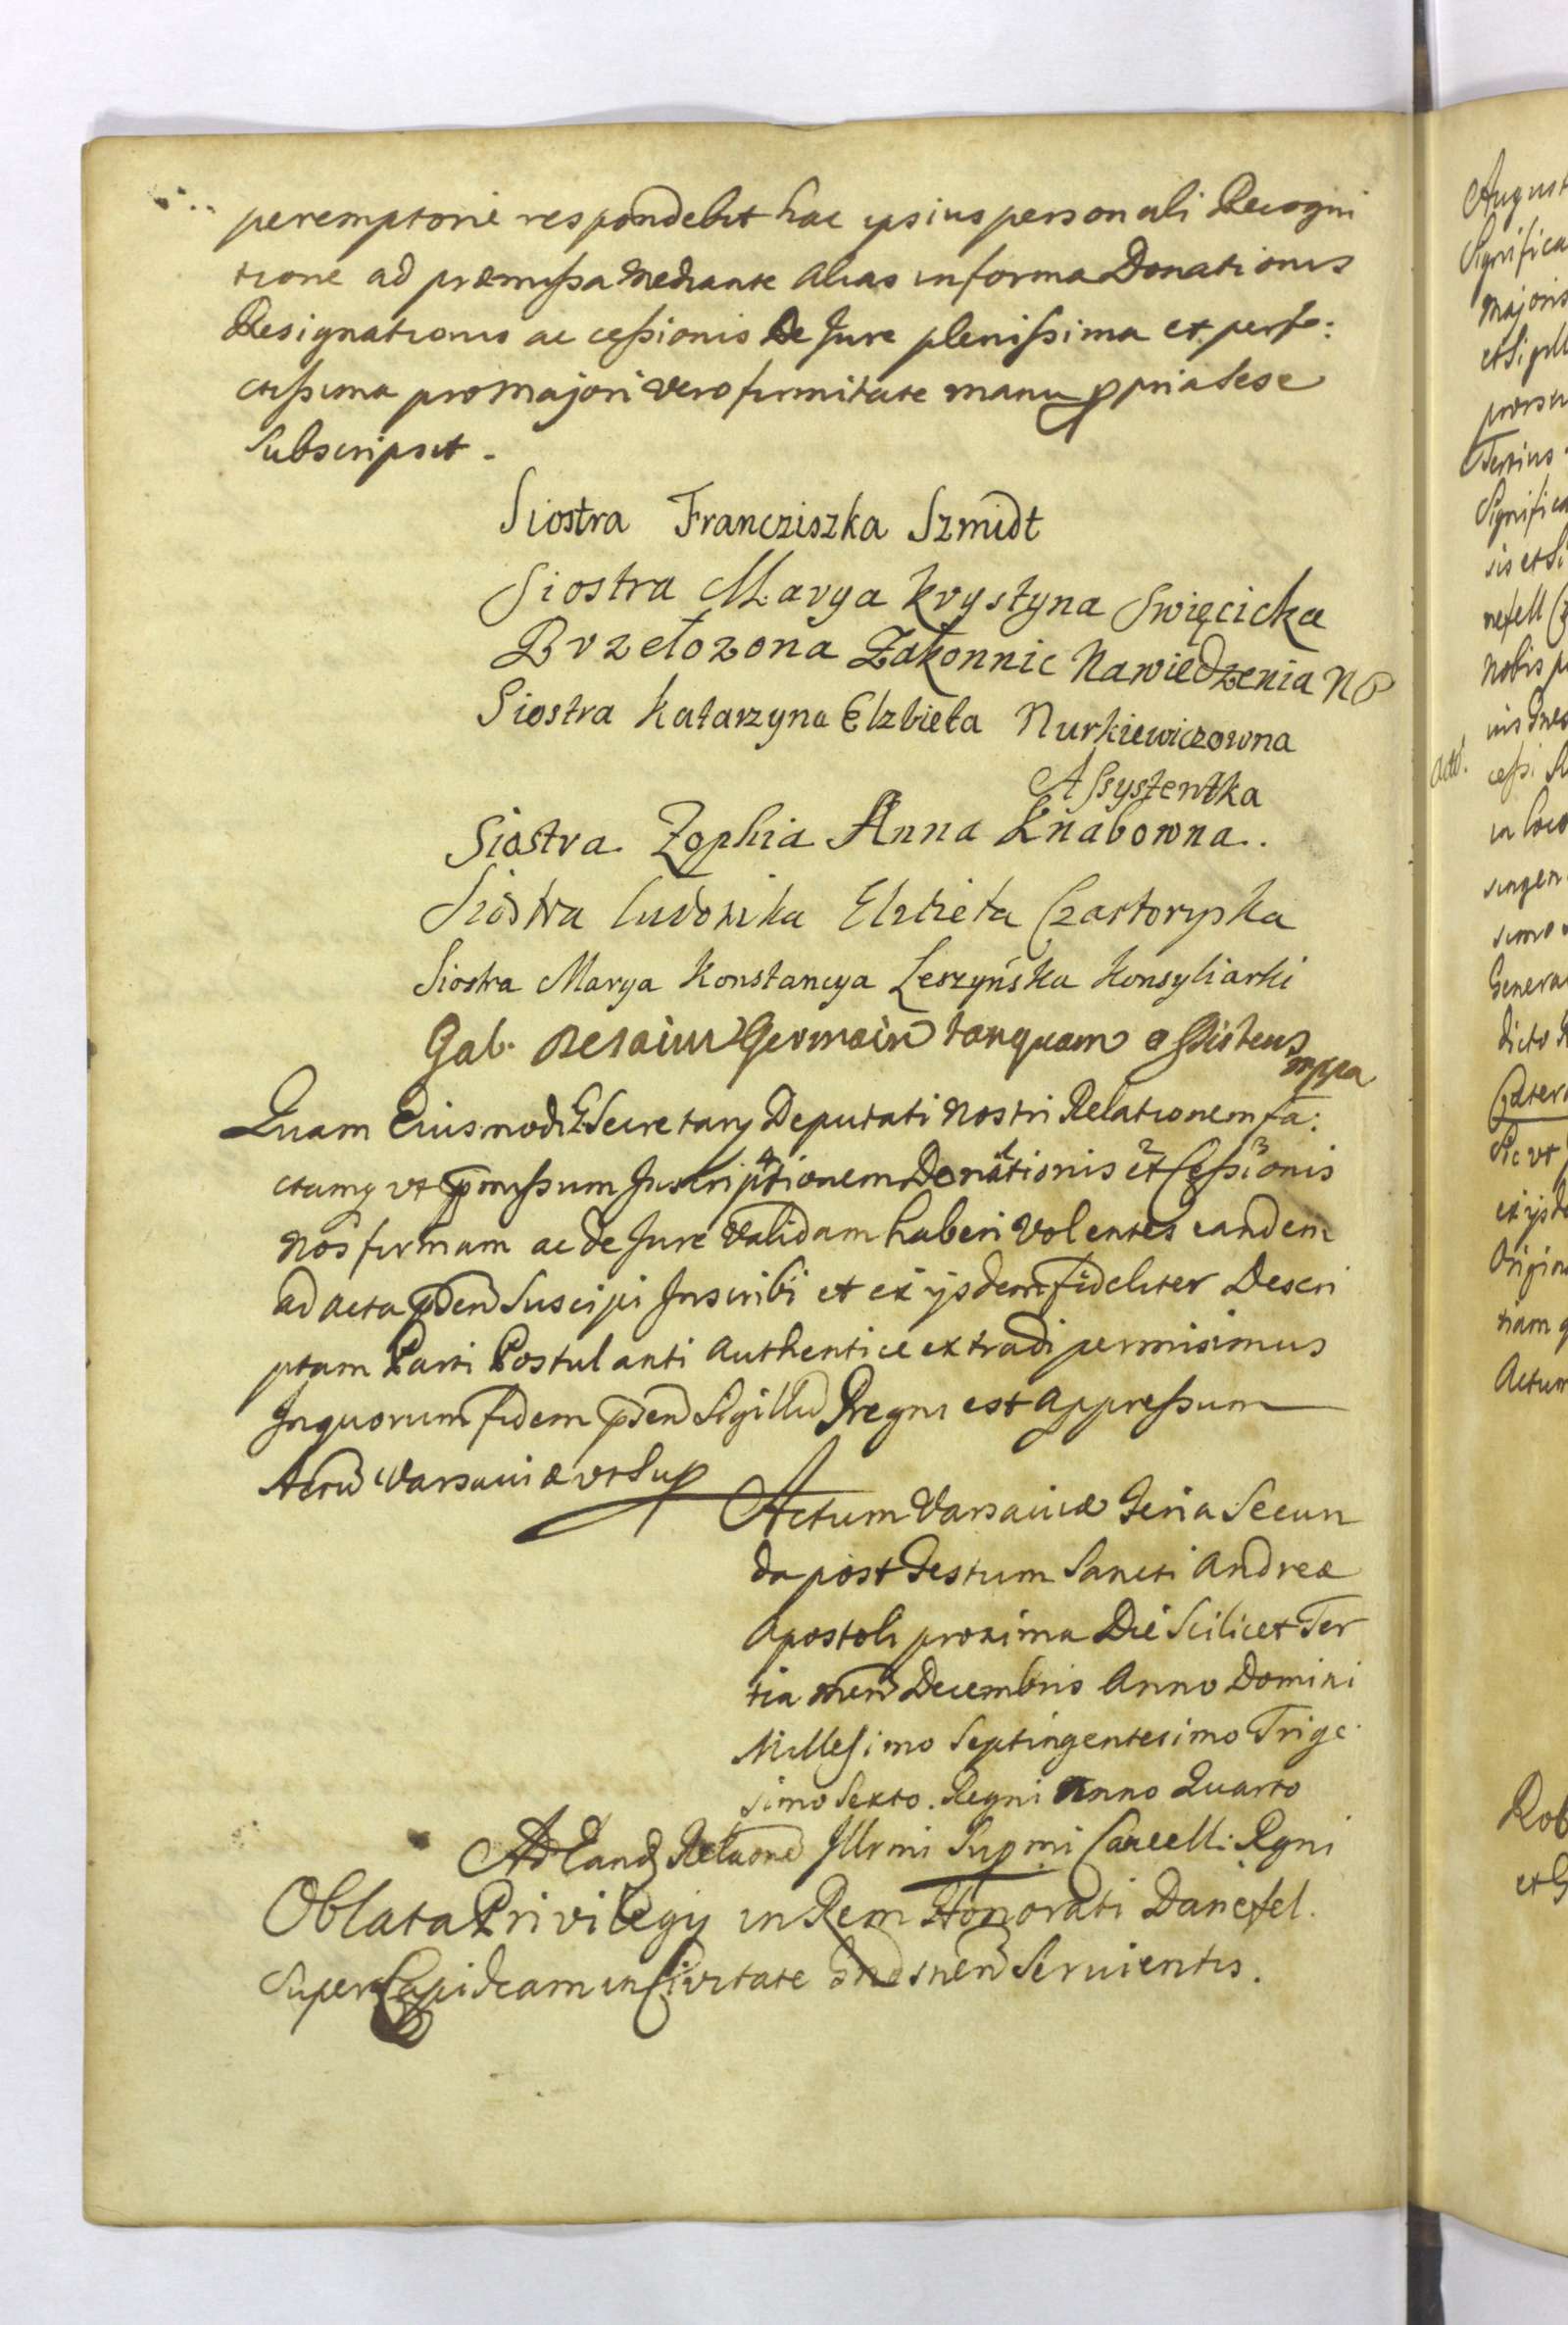 peremptorie respondebit hac ipsius personali Recogni
tione ad præmissa mediante alias in forma Donationis
Resignationis ac cessionis De Jure plenissima et perfe:
ctissima pro majori vero firmitate manu ppria sese
Subscripsit.
Siostra Francziszka Szmidt
Siostra Marya Krystyna Swięcicka
Przełozona Zakonnic Nawiedzenia NP
Siostra Katarzyna Elzbieta Nurkiewiczowna
Assystentka
Siostra Zophia Anna Knabowna..
Siostra Ludowika Elzbieta Czartoryska
Siostra Marya Konstancya Leszyńska Konsyliarki
Gab. Germain tanquam assistens
mppa
Quam Eiusmodi Secretarij Deputati Nostri Relationem fa:
ctamq vt pmissum Inscriptionem Donationis et Cessionis
Nos firmam ac de Jure Validam haberi Volentes eandem
ad acta pnsen Suscipi Inscribi et ex ijsdem fideliter Descri
ptam Parti Postulanti Authentice extradi permisimus
In quorum fidem pnsen Sigillu Regni est appressum
Actu Varsaviæ vt Sup
Actum Varsaviæ Feria Secun
da post Festum Sancti Andreæ
Apostoli proxima Die Scilicet Ter
tia men Decembris Anno Domini
Millesimo Septingentesimo Trige
simo Sexto. Regni Anno Quarto
Ad Eand Relaone Illrmi Supmi Cancell: Rgni
Oblata Privilegij in Rem Honorati Danefel.
Super Lapideam in Civitate Servientis.